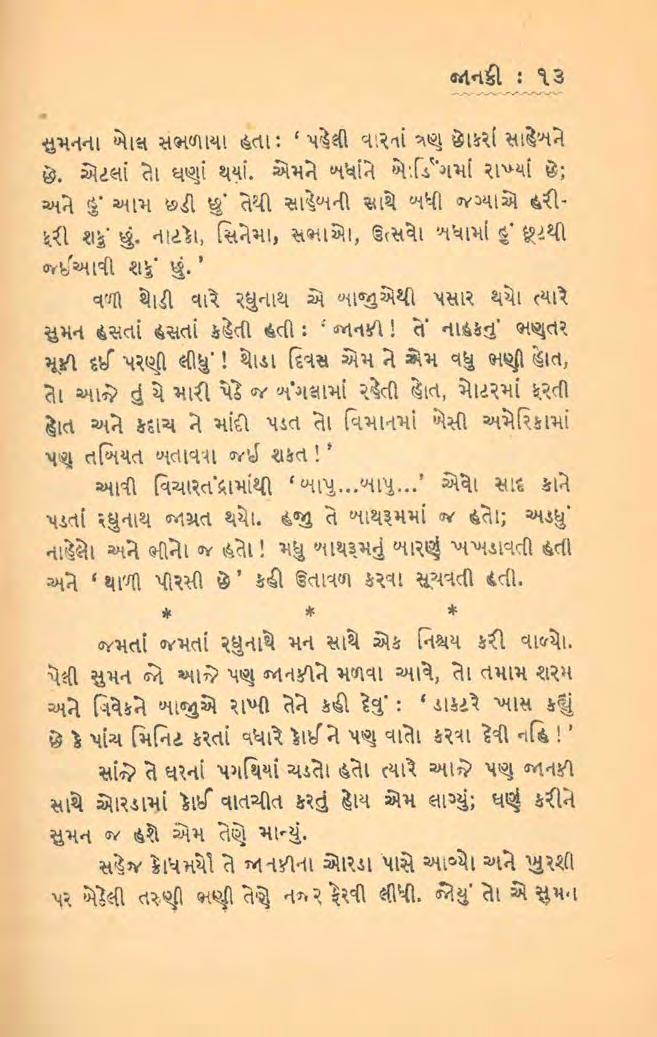 જાનકી : ૧૩
સુમનના બોલ સંભળાયા હતા : ‘ પહેલી વારનાં ત્રણ છોકરાં સાહેબને
છે. એટલાં તો ઘણાં થયાં. એમને બધાંને બોર્ડિંગમાં રાખ્યાં છે;
અને હું આમ છડી છું તેથી સાહેબની સાથે બધી જગ્યાએ હરી-
ફરી શકું છું. નાટકો, સિનેમા, સભાઓ, ઉત્સવો બધામાં હું છૂટથી
જઈઆવી શકું છું. ’
વળી થોડી વારે રઘુનાથ એ બાજુએથી પસાર થયો ત્યારે
સુમન હસતાં હસતાં કહેતી હતી : ‘ જાનકી ! તેં નાહકનું ભણતર
મૂકી દઈ પરણી લીધું ! થોડા દિવસ એમ ને એમ વધુ ભણી હોત,
તો આજે તું યે મારી પેઠે જ બંગલામાં રહેતી હોત, મોટરમાં ફરતી
હોત અને કદાચ ને માંદી પડત તો વિમાનમાં બેસી અમેરિકામાં
પણ તબિયત બતાવવા જઈ શકત ! ’
આવી વિચારતંદ્રામાંથી ‘ બાપુ...બાપુ... ’ એવો સાદ કાને
પડતાં રઘુનાથ જાગ્રત થયો. હજુ તે બાથરૂમમાં જ હતો; અડધું
નાહેલો અને ભીનો જ હતો ! મધુ બાથરૂમનું બારણું ખખડાવતી હતી
અને ‘ થાળી પીરસી છે ’ કહી ઉતાવળ કરવા સૂચવતી હતી.
* * *
જમતાં જમતાં રઘુનાથે મન સાથે એક નિશ્ચય કરી વાળ્યો.
પેલી સુમન જો આજે પણ જાનકીને મળવા આવે, તો તમામ શરમ
અને વિવેકને બાજુએ રાખી તેને કહી દેવું : ‘ ડાક્ટરે ખાસ કહ્યું
છે કે પાંચ મિનિટ કરતાં વધારે કોઈ ને પણ વાતો કરવા દેવી નહિ ! ’
સાંજે તે ઘરનાં પગથિયાં ચડતો હતો ત્યારે આજે પણ જાનકી
સાથે ઓરડામાં કોઈ વાતચીત કરતું હોય એમ લાગ્યું; ઘણું કરીને
સુમન જ હશે એમ તેણે માન્યું.
સહેજ ક્રોધમર્યો તે જાનકીના ઓરડા પાસે આવ્યો અને ખુરશી
પર બેઠેલી તરુણી ભણી તેણે નજર ફેરવી લીધી. જોયું તો એ સુમન